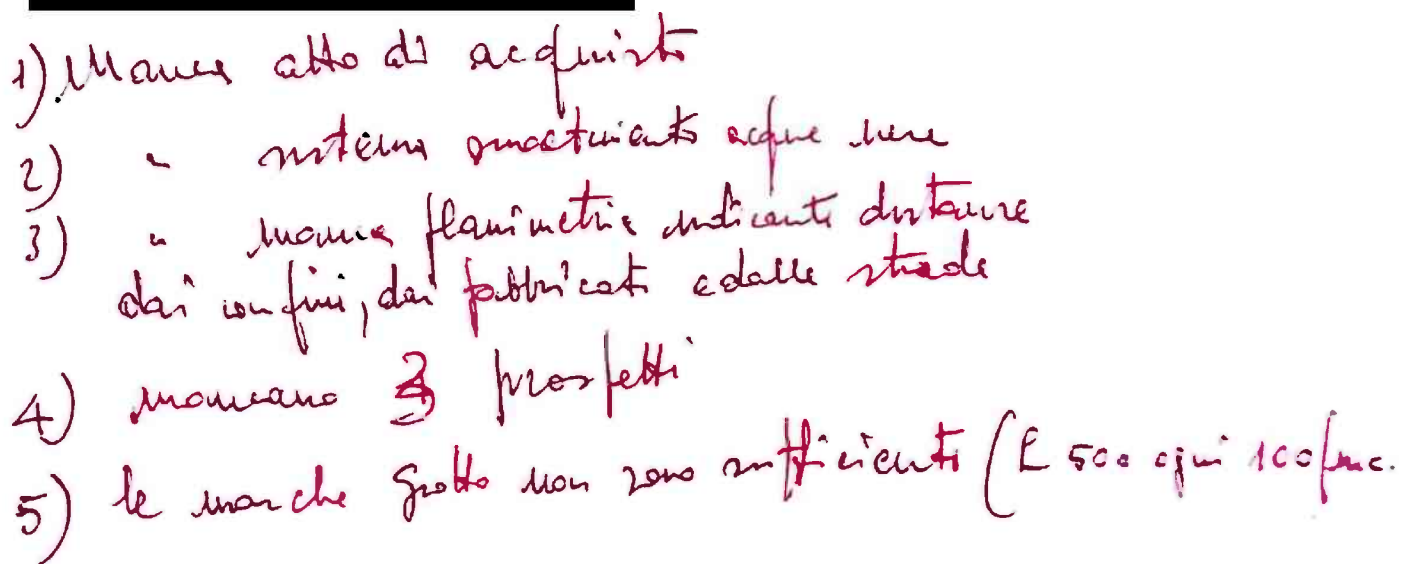 1) Manca atto di acquisto
2) " sistema smaltimento acque nere
3) " manca planimetria indicante distanze
dai confini, dai fabbricati e dalle strade
4) mancano 3 prospetti
5) le marche Giotto non sono sufficienti (£ 500 ogni 100 mc.